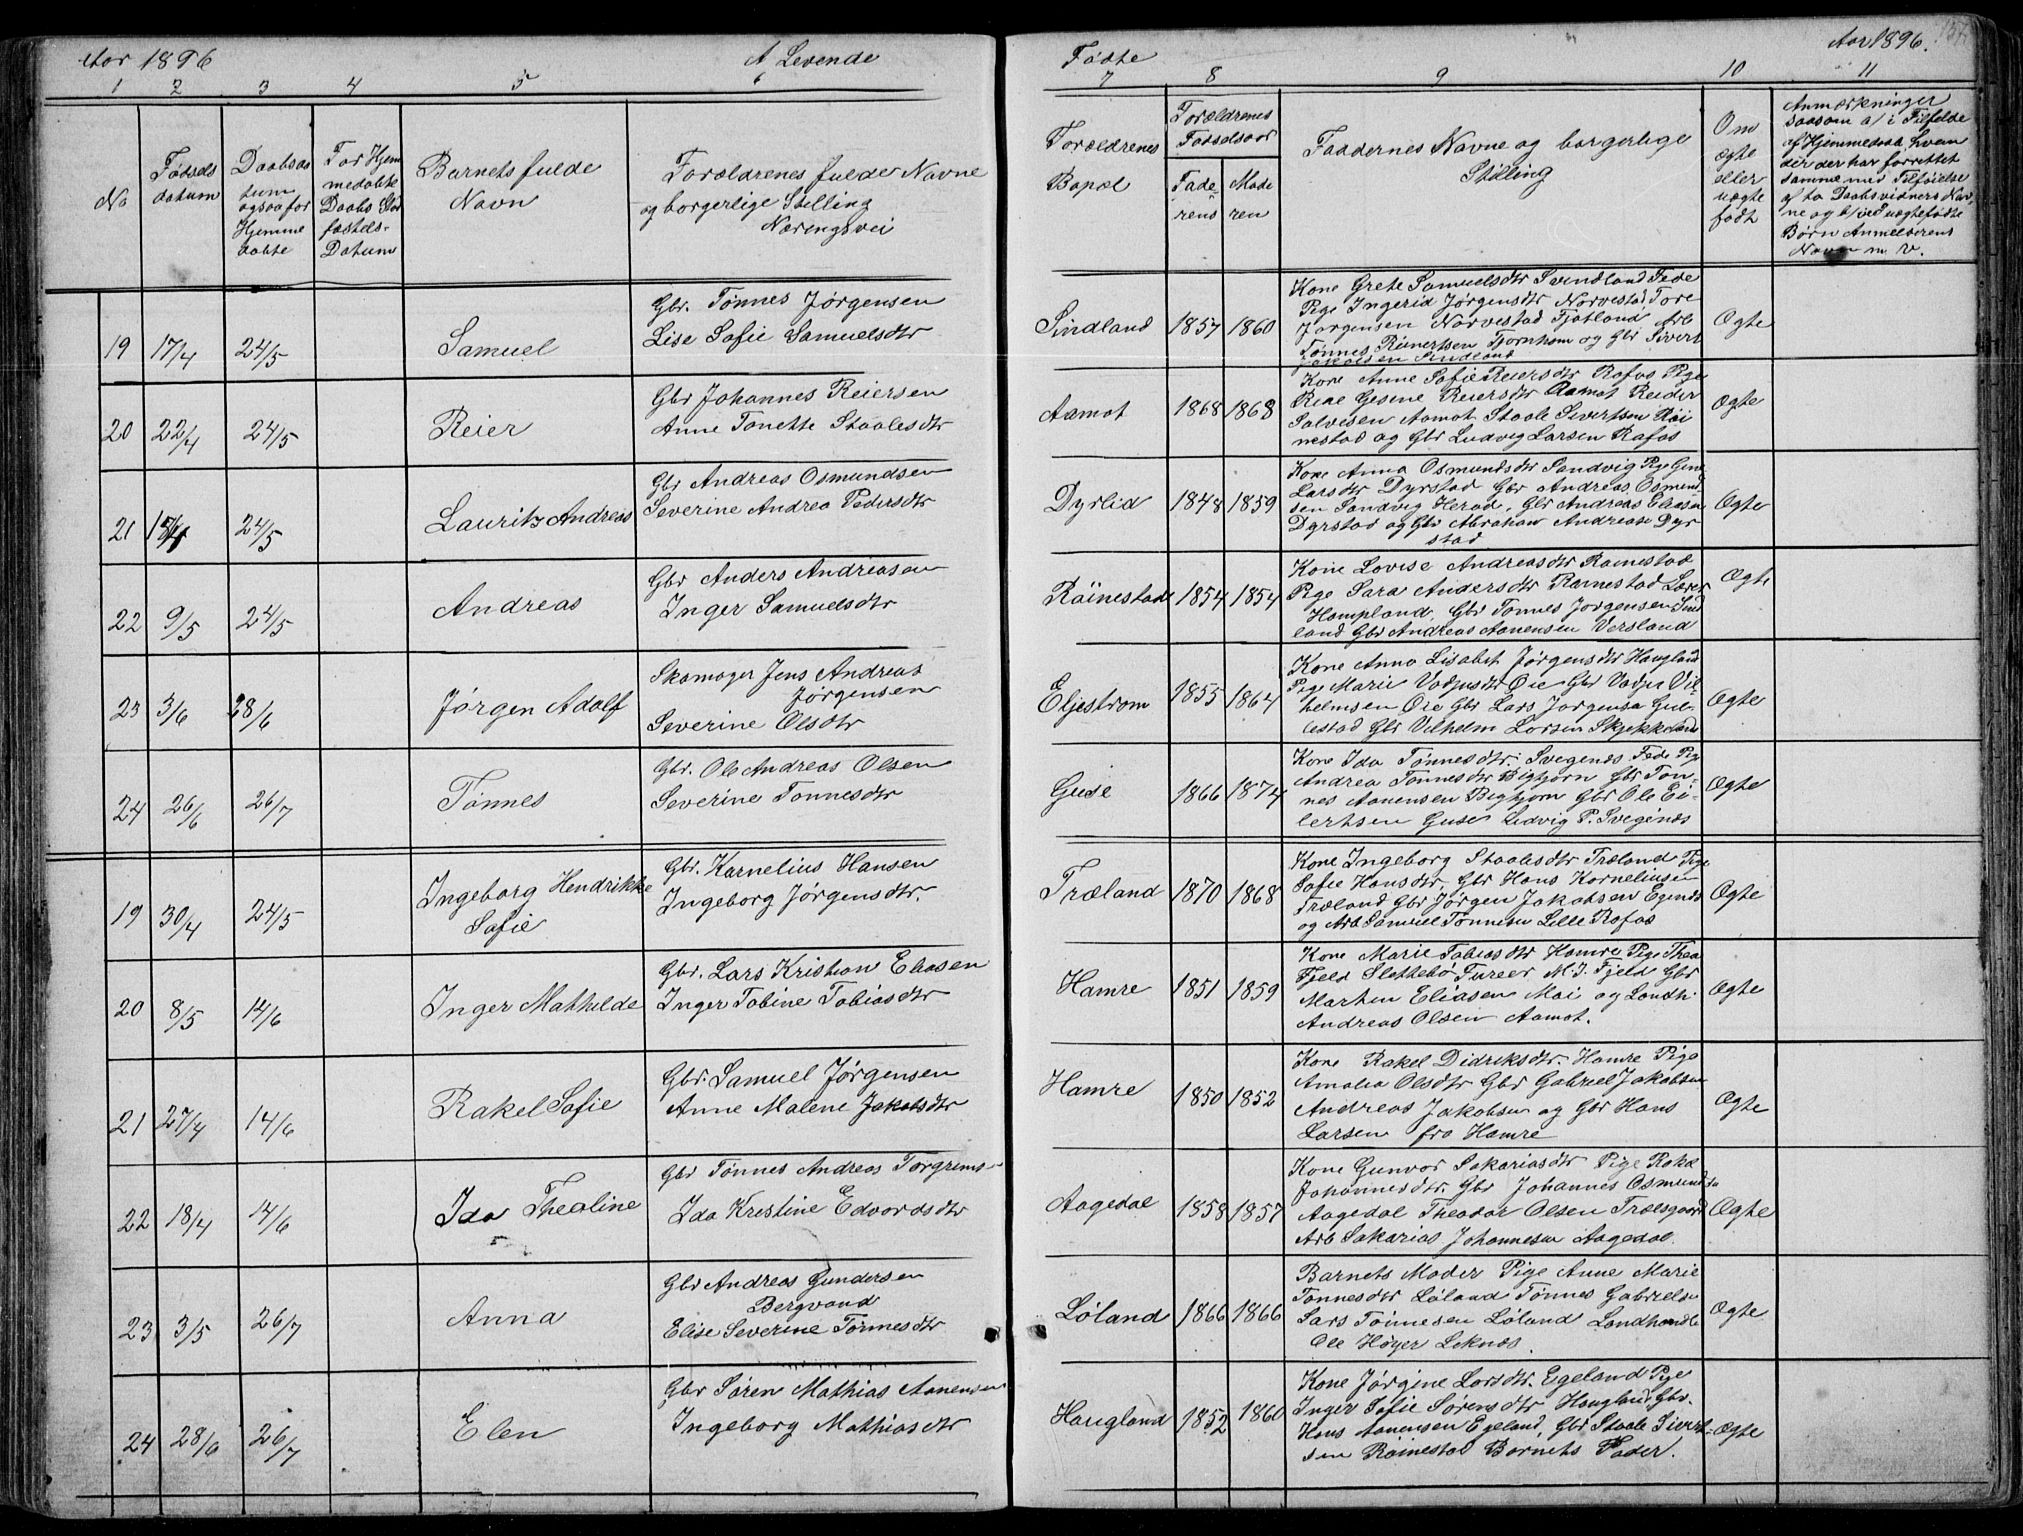 Aar 1896
A Levende
Fødte
Aar 1896.
1 2 3 4 5 6 7 8 9 10 11
No
Fødsels
datum
Daabsda
tum
ogsaa for
Hjemme
døbte
For Hjem
medøbte
Daabs Stad
fæstels-
Datum
Barnets fulde
Navn
Forældrenes fulde Navne
og borgerlige Stilling
Næringsvei
Forældrenes
Bopæl
Forældrenes
Fødselsaar
Fade-
rens
Mode
ren
Faddernes Navne og borgerlige
Stilling
Om
ægte
eller
uægte
født
Anmærkninger
saasom a/ i Tilfælde
af Hjemmedaab, hvem
der der har forrettet
samme med Tilføielse
af to Daabsvidners Nav-
ne og b/ ved uægtefødte
Børn Anmelderens
Navn m. v.
19 17/4 24/5 Samuel
Gbr. Tønnes Jørgensen
Lise Sofie Samuelsdtr
Sindland 1857 1860
Kone Grete Samuelsdtr Svindland Fede
Pige Ingerid Jørgensdtr Narvestad Tore
Jørgensen Narvestad Fjotland Arb
Tønnes Reinertsen Tjørnhom og Gbr Sivert
Jakobsen Sindland
Ægte
20 22/4 24/5 Reier
Gbr Johannes Reiersen
Anne Tonette Staalesdtr
Aamot 1868 1868
Kone Anne Sofie Reiersdtr Rafos Pige
Gesine Reiersdtr Aamot Reider
Salvesen Aamot Staale Sivertsen Røi
nestad og Gbr Ludvig Larsen Rafos
Ægte
21 24/5 Lauritz Andreas
Gbr Andreas Osmundsen
Severine Andrea Pedersdtr
Dyrlid 1848 1859
Kone Anna Osmundsdtr Sandvig Pige Gine
Larsdtr Dyrstad Gbr Andreas Osmund
sen Sandvig Herad, Gbr Andreas Eliasen
Dyrstad og Gbr Abraham Andreasen Dyr
stad
Ægte
22 9/5 24/5 Andreas
Gbr Anders Andreasen
Inger Samuelsdtr
Røinestad 1854 1854
Kone Lovise Andreasdtr Rømestad
Pige Sara Andersdtr Rømestad Lærer
Hompland, Gbr Tønnes Jørgensen Sind
land Gbr Andreas Aanensen Versland
Ægte
23 3/6 28/6 Jørgen Adolf
Skomager Jens Andreas
Jørgensen
Severine Olsdtr
Eljestrøm 1855 1864
Kone Anna Lisabet Jørgensdtr Haugland
Pige Marie Vadjusdtr Øie Gbr Vadju Vil-
helmsen Øie Gbr Lars Jørgensen Gul-
lestad Gbr Vilhelm Larsen Skjekkeland
Ægte
24 26/6 26/7 Tønnes
Gbr. Ole Andreas Olsen
Severine Tønnesdtr
Guse 1866 1874
Kone Ida Tønnesdtr Svegenes Fede Pig
Andrea Tønnesdtr Bighjørn Gbr Tøn-
nes Aanensen Bighjørn Gbr Ole Ei-
lertsen Guse Ludvig P. Svegenæs
Ægte
19 30/4 24/5 Ingeborg Hendrikke
Sofie
Gbr. Kornelius Hansen
Ingeborg Jørgensdtr.
Træland 1870 1868
Kone Ingeborg Staalesdtr Træland Pige
Sofie Hansdtr, Gbr Hans Korneliusen
Træland Gbr Jørgen Jakobsen Egenes
og Arb Samuel Tønnesen Lille Rafos
Ægte
20 8/5 14/6 Inger Mathilde
Gbr. Lars Kristian Eliasen
Inger Tobine Tobiasdtr
Hamre 1851 1859
Kone Marie Tobiasdtr Hamre Pige Thea
Fjeld Slottebø Furer M. J. Fjeld Gbr
Marten Eliasen Moi og Landh.
Andreas Olsen Aamot.
Ægte
21 27/4 14/6 Rakel Sofie
Gbr. Samuel Jørgensen
Anne Malene Jakobsdtr
Hamre 1850 1852
Kone Rakel Didriksdtr. Hamre Pige
Amalia Olsdtr Gbr Gabriel Jakobsen
Andreas Jakobsen og Gbr Hans
Larsen fra Hamre
Ægte
22 18/4 14/6 Ida Thealine
Gbr Tønnes Andreas Torgrims-
Ida Kristine Edvardsdtr
Aagedal 1858 1857
Kone Gunvor Sakariasdtr Pige Rakel
Johannesdtr. Gbr Johannes Osmunds
Aagedal Theodor Olsen Trælsgaard
Arb Sakarias Johannesen Aagedal.
Ægte
23 3/5 26/7 Anna
Gbr Andreas Gundersen
Bergvand
Elise Severine Tønnesdtr
Løland 1866 1866
Barnets Moder Pige Anne Marie
Tønnesdtr Løland Tønnes Gabrielsen
Lars Tønnesen Løland Landhandl
Ole Høyer Leknes.
Ægte
24 28/6 26/7 Elen
Gbr Søren Mathias Aanensen
Ingeborg Mathiasdtr
Haugland 1852 1860
Kone Jørgine Larsdtr. Egeland Pige
Inger Sofie Sørensdtr Haugland, Gbr.
Hans Aanensen Egeland, Gbr Staale Sivert-
sen Røinestad Barnets Fader.
Ægte